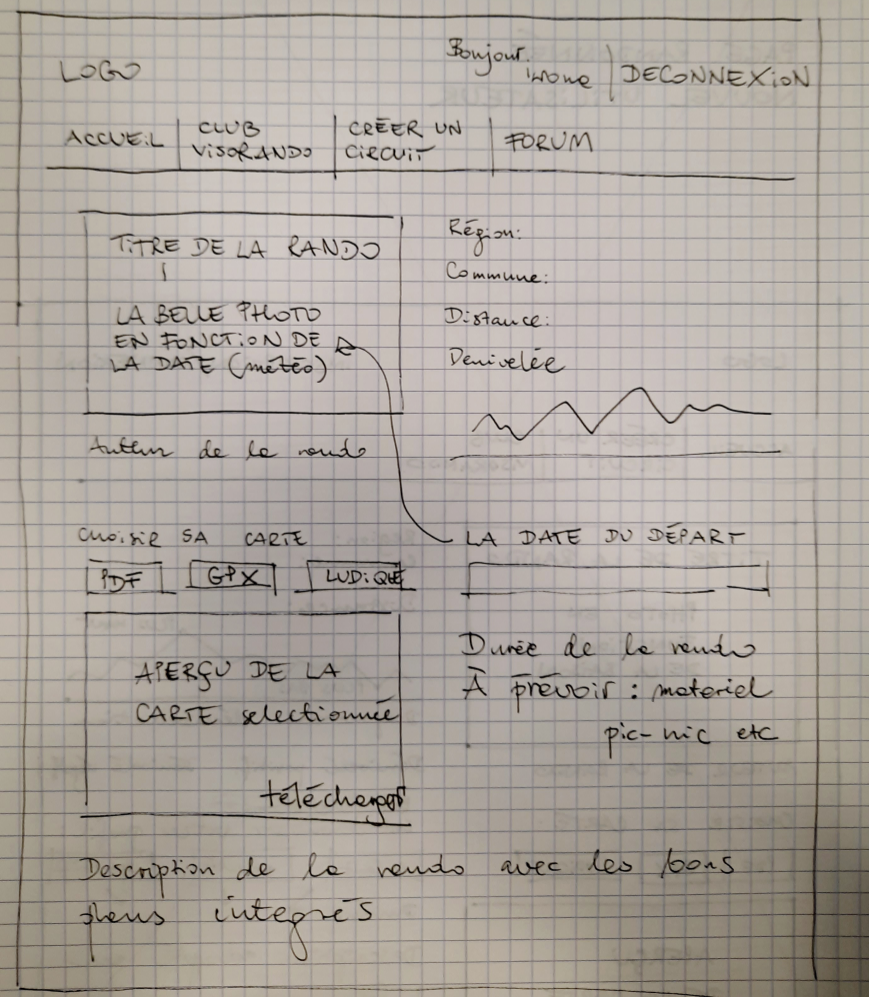 LOGO
Bonjour.
DECONNEXION
ACCUEIL
CLUB
VISORANDO
CRÉER UN
CIRCUIT
FORUM
TITRE DE LA RANDO
LA BELLE PHOTO
EN FONCTION DE
LA DATE (météo)
Région:
Commune:
Distance:
Denivelée
Auteur de la rando
CHOISIR SA CARTE
PDF
GPX
LUDIQUE
LA DATE DU DÉPART
APERÇU DE LA
CARTE selectionnée
télécharger
Durée de la rando
À prévoir : materiel
pic-nic etc
Description de la rando avec les bons
plans integrés